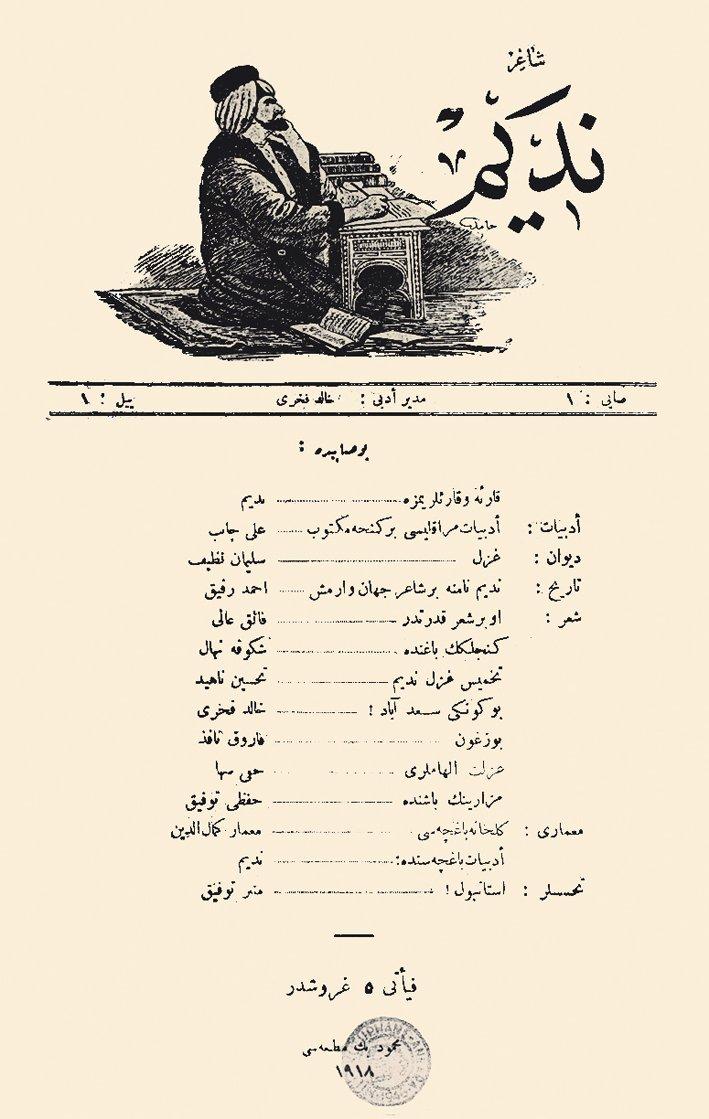 شاعر
نديم
حامد
صايى : ١ مدير أدبى : خالد فخرى ييل : ١
بو صاييده :
قارئه و قارئلريمزه نديم
أدبيات : أدبيات مراقليسى بر گنجه مكتوب على جانب
ديوان : غزل سليمان نظيف
تاريخ : نديم نامنه بر شاعر جهان وارمش احمد رفيق
شعر : او بر شعر قدرتدر فائق عالى
گنجلكك باغنده شكوفه نهال
تخميس غزل نديم تحسين ناهيد
بو كونكى سعد آباد ! خالد فخرى
بوزغون فاروق نافذ
عزلت الهاملرى حقى سها
مزارينك باشنده حفظى توفيق
معمارى : كلخانه باغچه سى معمار كمال الدين
أدبيات باغچه سنده : نديم
تحسسلر : استانبول ! منير توفيق
فيأتى ٥ غروشدر
محمود بك مطبعه سى
١٩١٨